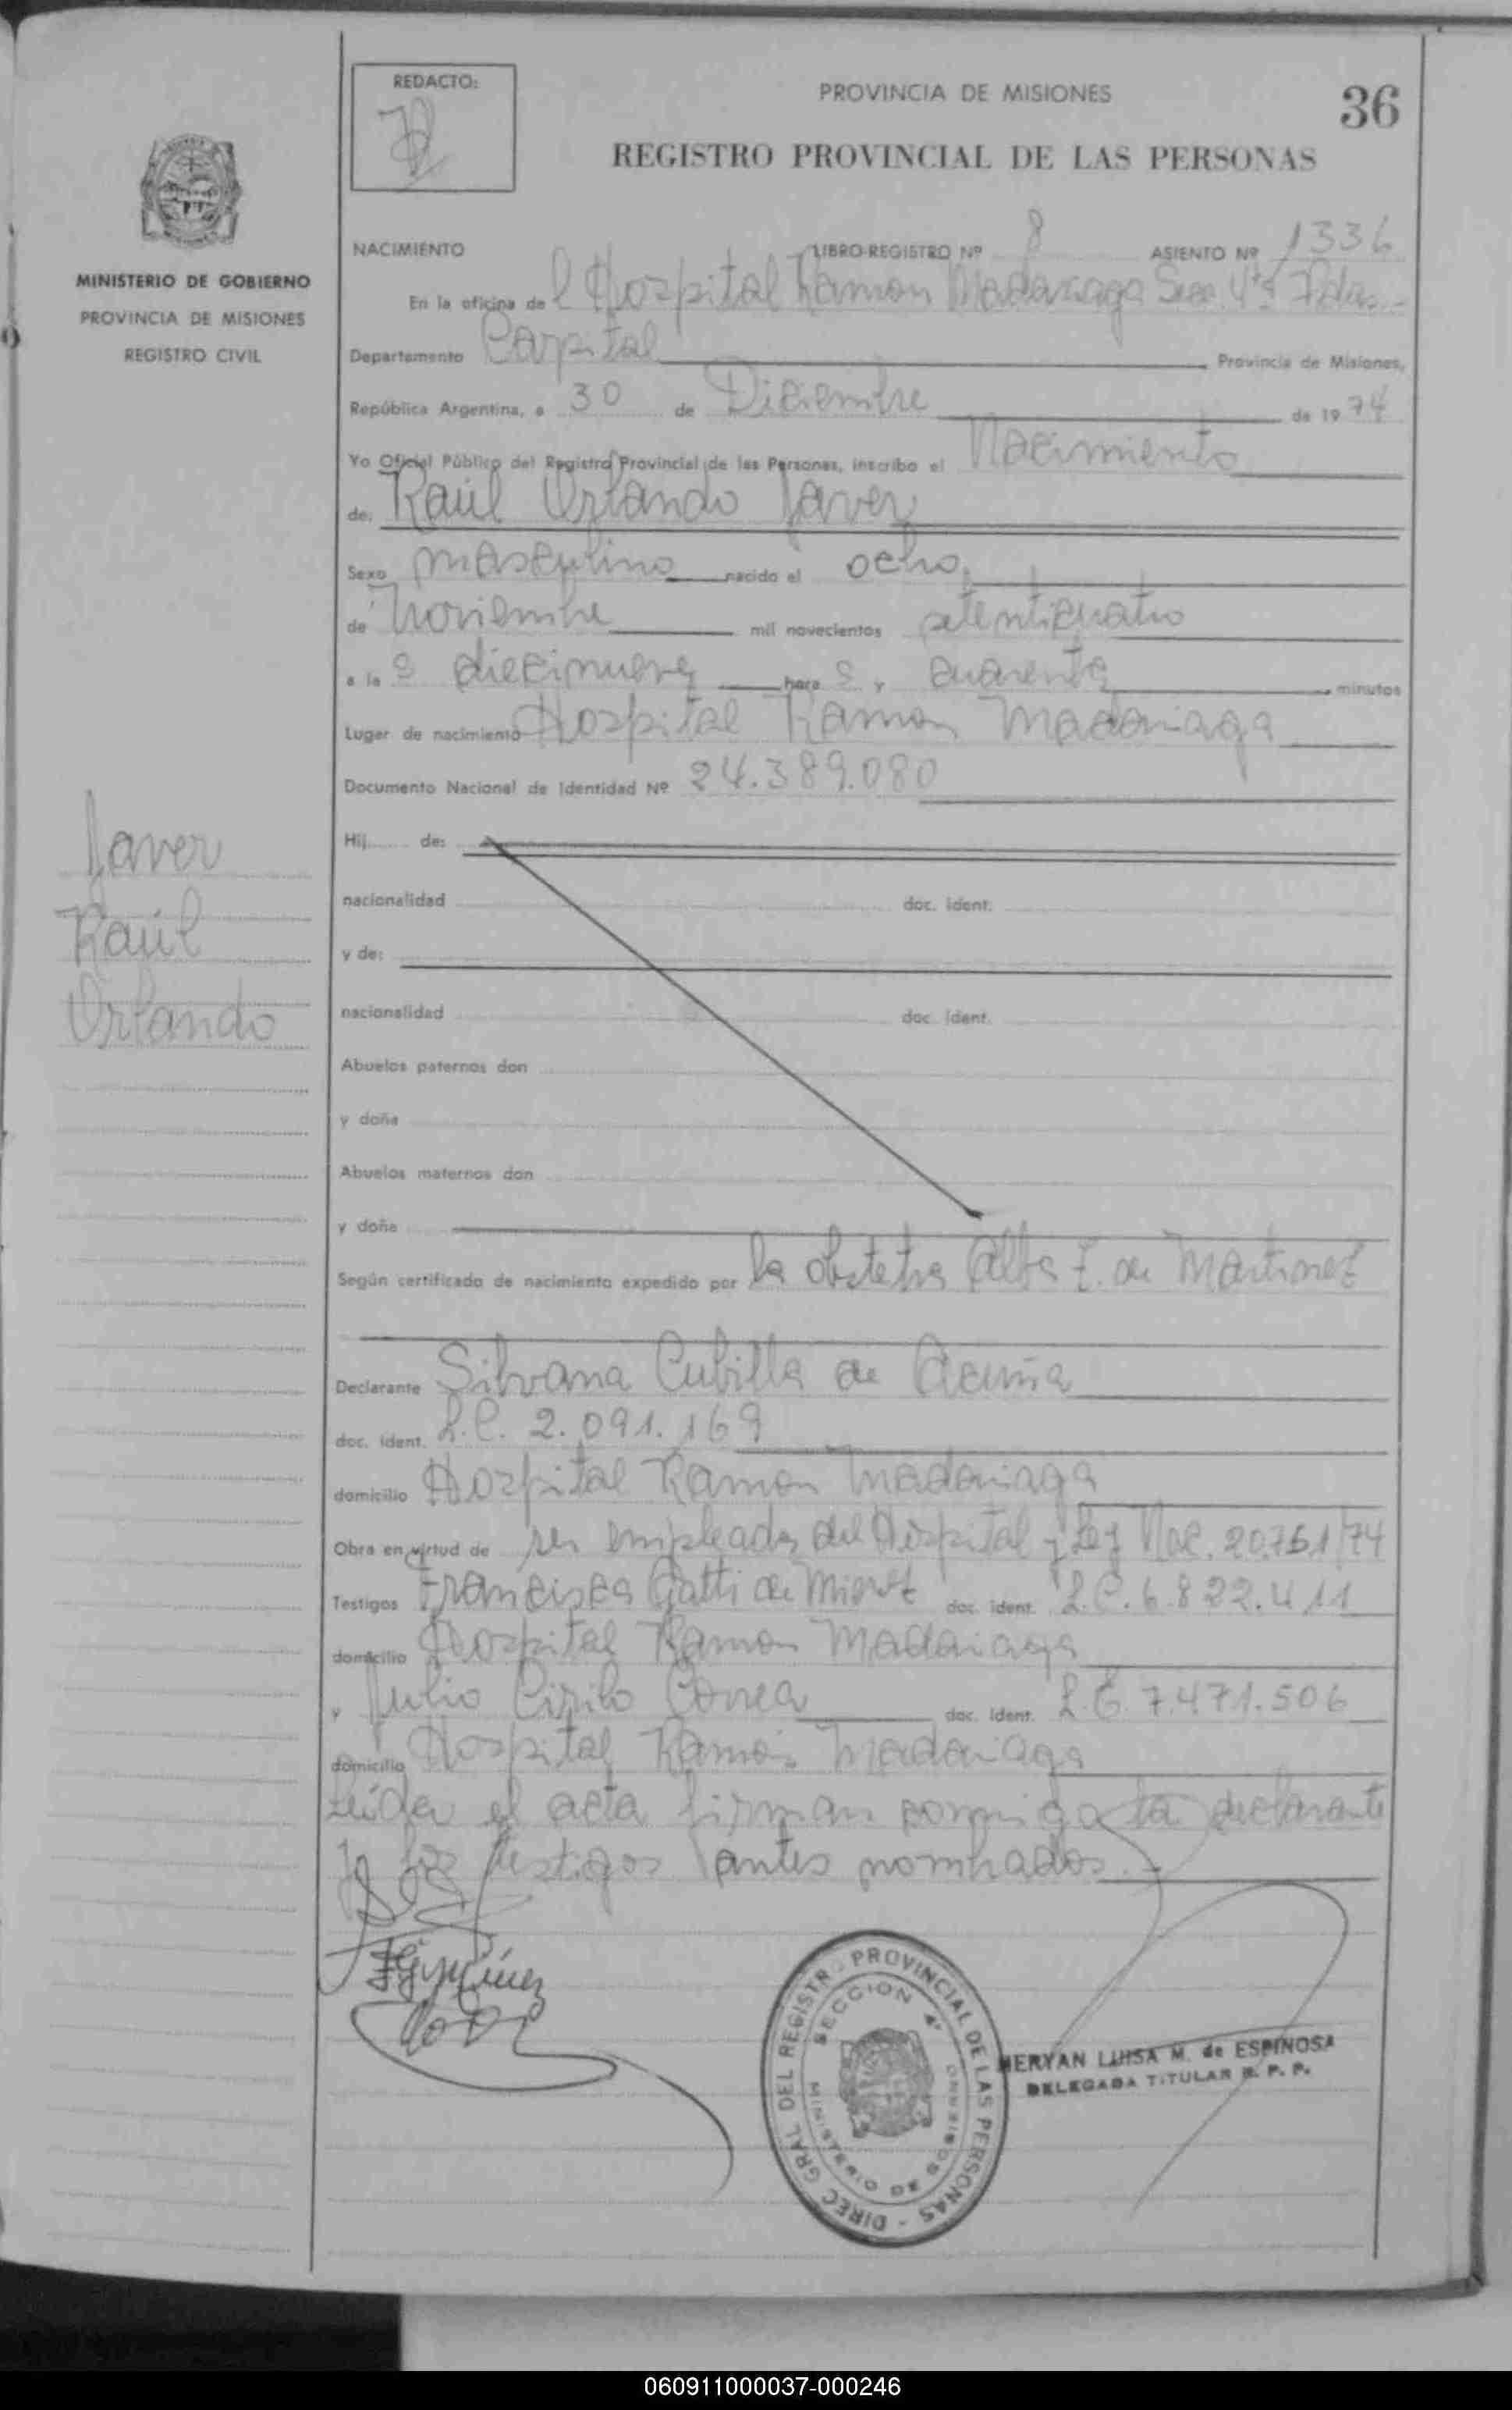 REDACTO:
PROVINCIA DE MISIONES
36
REGISTRO PROVINCIAL DE LAS PERSONAS
MINISTERIO DE GOBIERNO
PROVINCIA DE MISIONES
REGISTRO CIVIL
NACIMIENTO LIBRO-REGISTRO Nº 8 ASIENTO Nº 1336
En la oficina de l Hospital Ramon Madariaga Secc. 4ta Pdas.-
Departamento Capital Provincia de Misiones,
República Argentina, a 30 de Diciembre de 1974
Yo Oficial Público del Registro Provincial de las Personas, inscribo el Nacimiento
de: Raúl Orlando Javer
Sexo masculino nacido el ocho
de Noviembre mil novecientos setenticuatro
a la s diecinueve hora s y cuarenta minutos
Lugar de nacimiento Hospital Ramon Madariaga
Documento Nacional de Identidad Nº 24.389.080
Javer
Raúl
Orlando
Hij...... de:
nacionalidad doc. ident.
y de:
nacionalidad doc. ident.
Abuelos paternos don
y doña
Abuelos maternos don
y doña
Según certificado de nacimiento expedido por la obstetra Alba E. de Martinez
Declarante Silvana Cubilla de Acuña
doc. ident. L.C. 2.091.169
domicilio Hospital Ramon Madariaga
Obra en virtud de ser empleada del Hospital y Ley Nac. 20.751/74
Testigos Francisca Gatti de doc. ident. L.C. 6.822.411
domicilio Hospital Ramon Madariaga
y Julio Cirilo Correa doc. ident. L.E. 7.471.506
domicilio Hospital Ramon Madariaga
Leida el acta firman conmigo la declarante
y los testigos antes nombrados.-
DIREC. GRAL DEL REGISTRO PROVINCIAL DE LAS PERSONAS -
SECCION 4ª
MINISTERIO DE GOBIERNO
MERYAN LUISA M. de ESPINOSA
DELEGADA TITULAR R. P. P.
060911000037-000246